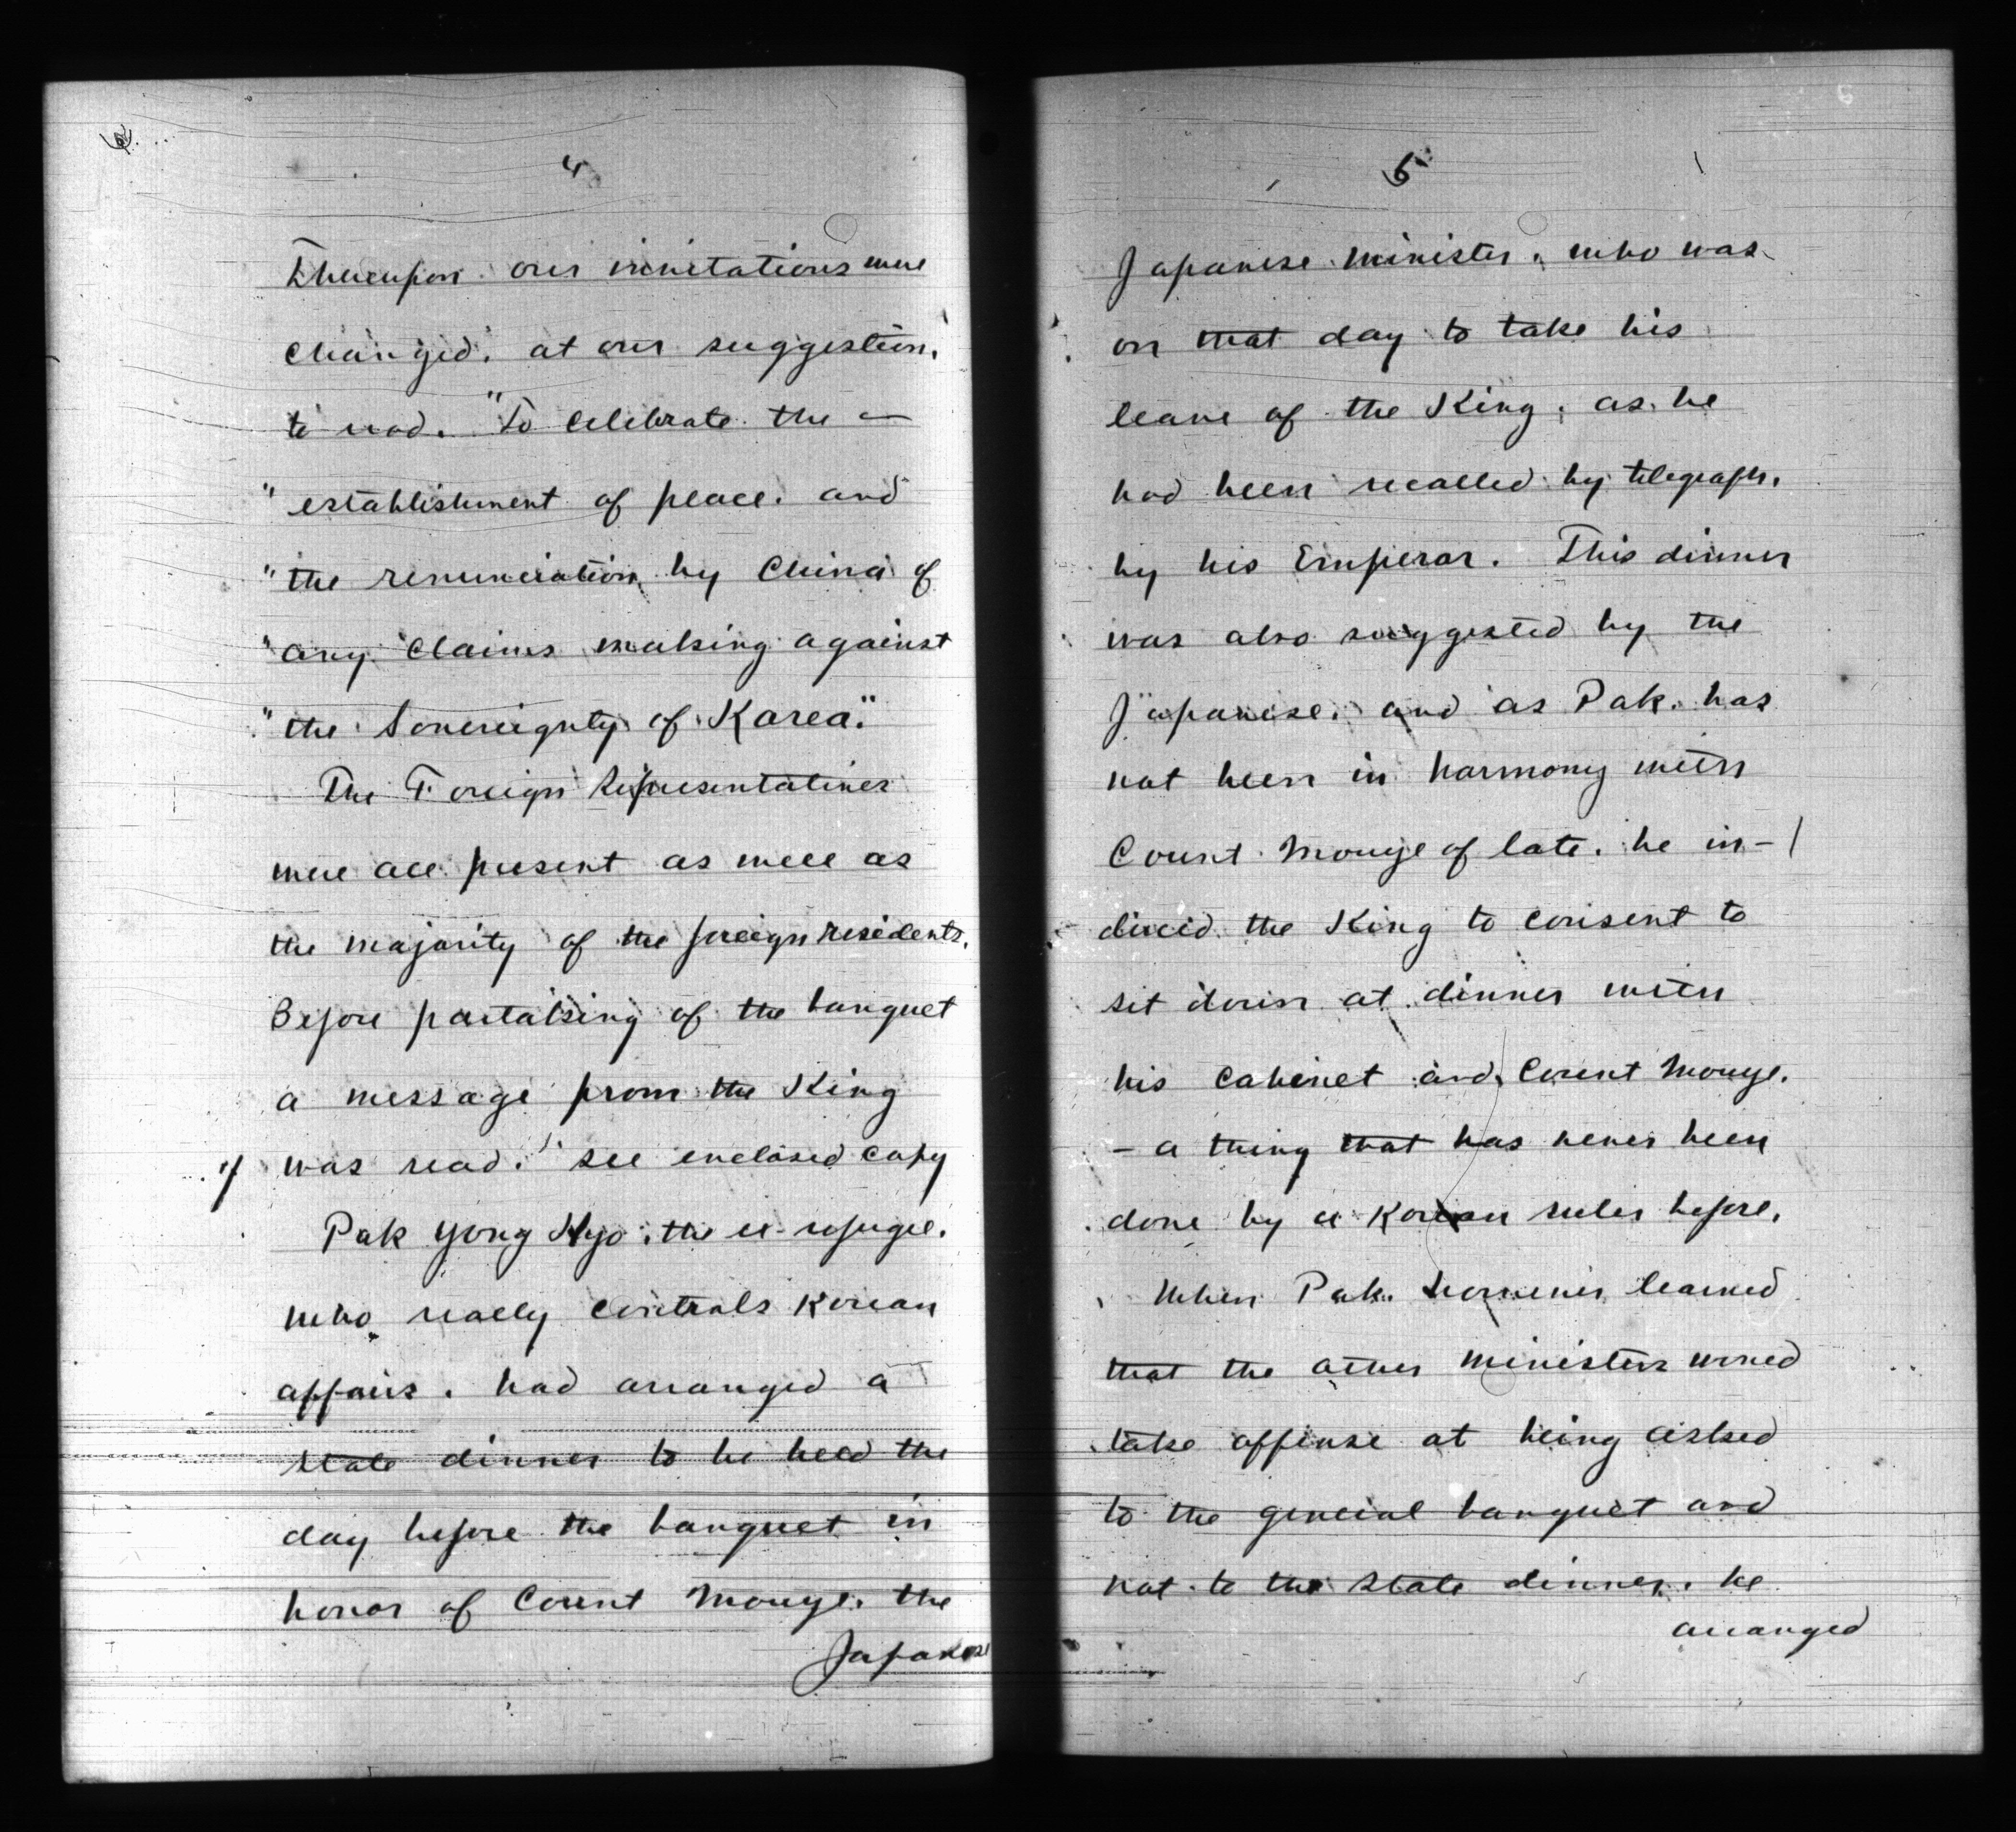 4
Thereupon our invitations were
changed, at our suggestion,
to read, "To celebrate the —
"establishment of peace, and
"the renunciation by China of
"any claims making against
"the Sovereignty of Korea."
The Foreign Representatives
were all present as well as
the majority of the foreign residents.
Before partaking of the banquet
a message from the King
was read. see enclosed copy
Pak Yong Hyo, the ex-refugee,
who really controls Korean
affairs, had arranged a
state dinner to be held the
day before the banquet in
honor of Count Inouye, the
Japanese
5
Japanese Minister, who was
on that day to take his
leave of the King, as he
had been recalled by telegraph,
by his Emperor. This dinner
was also suggested by the
Japanese, and as Pak has
not been in harmony with
Count Inouye of late, he in-
duced the King to consent to
sit down at dinner with
his cabinet and Count Inouye,
- a thing that has never been
done by a Korean ruler before.
When Pak however learned
that the other Ministers would
take offense at being asked
to the general banquet and
not to the state dinner, he
arranged